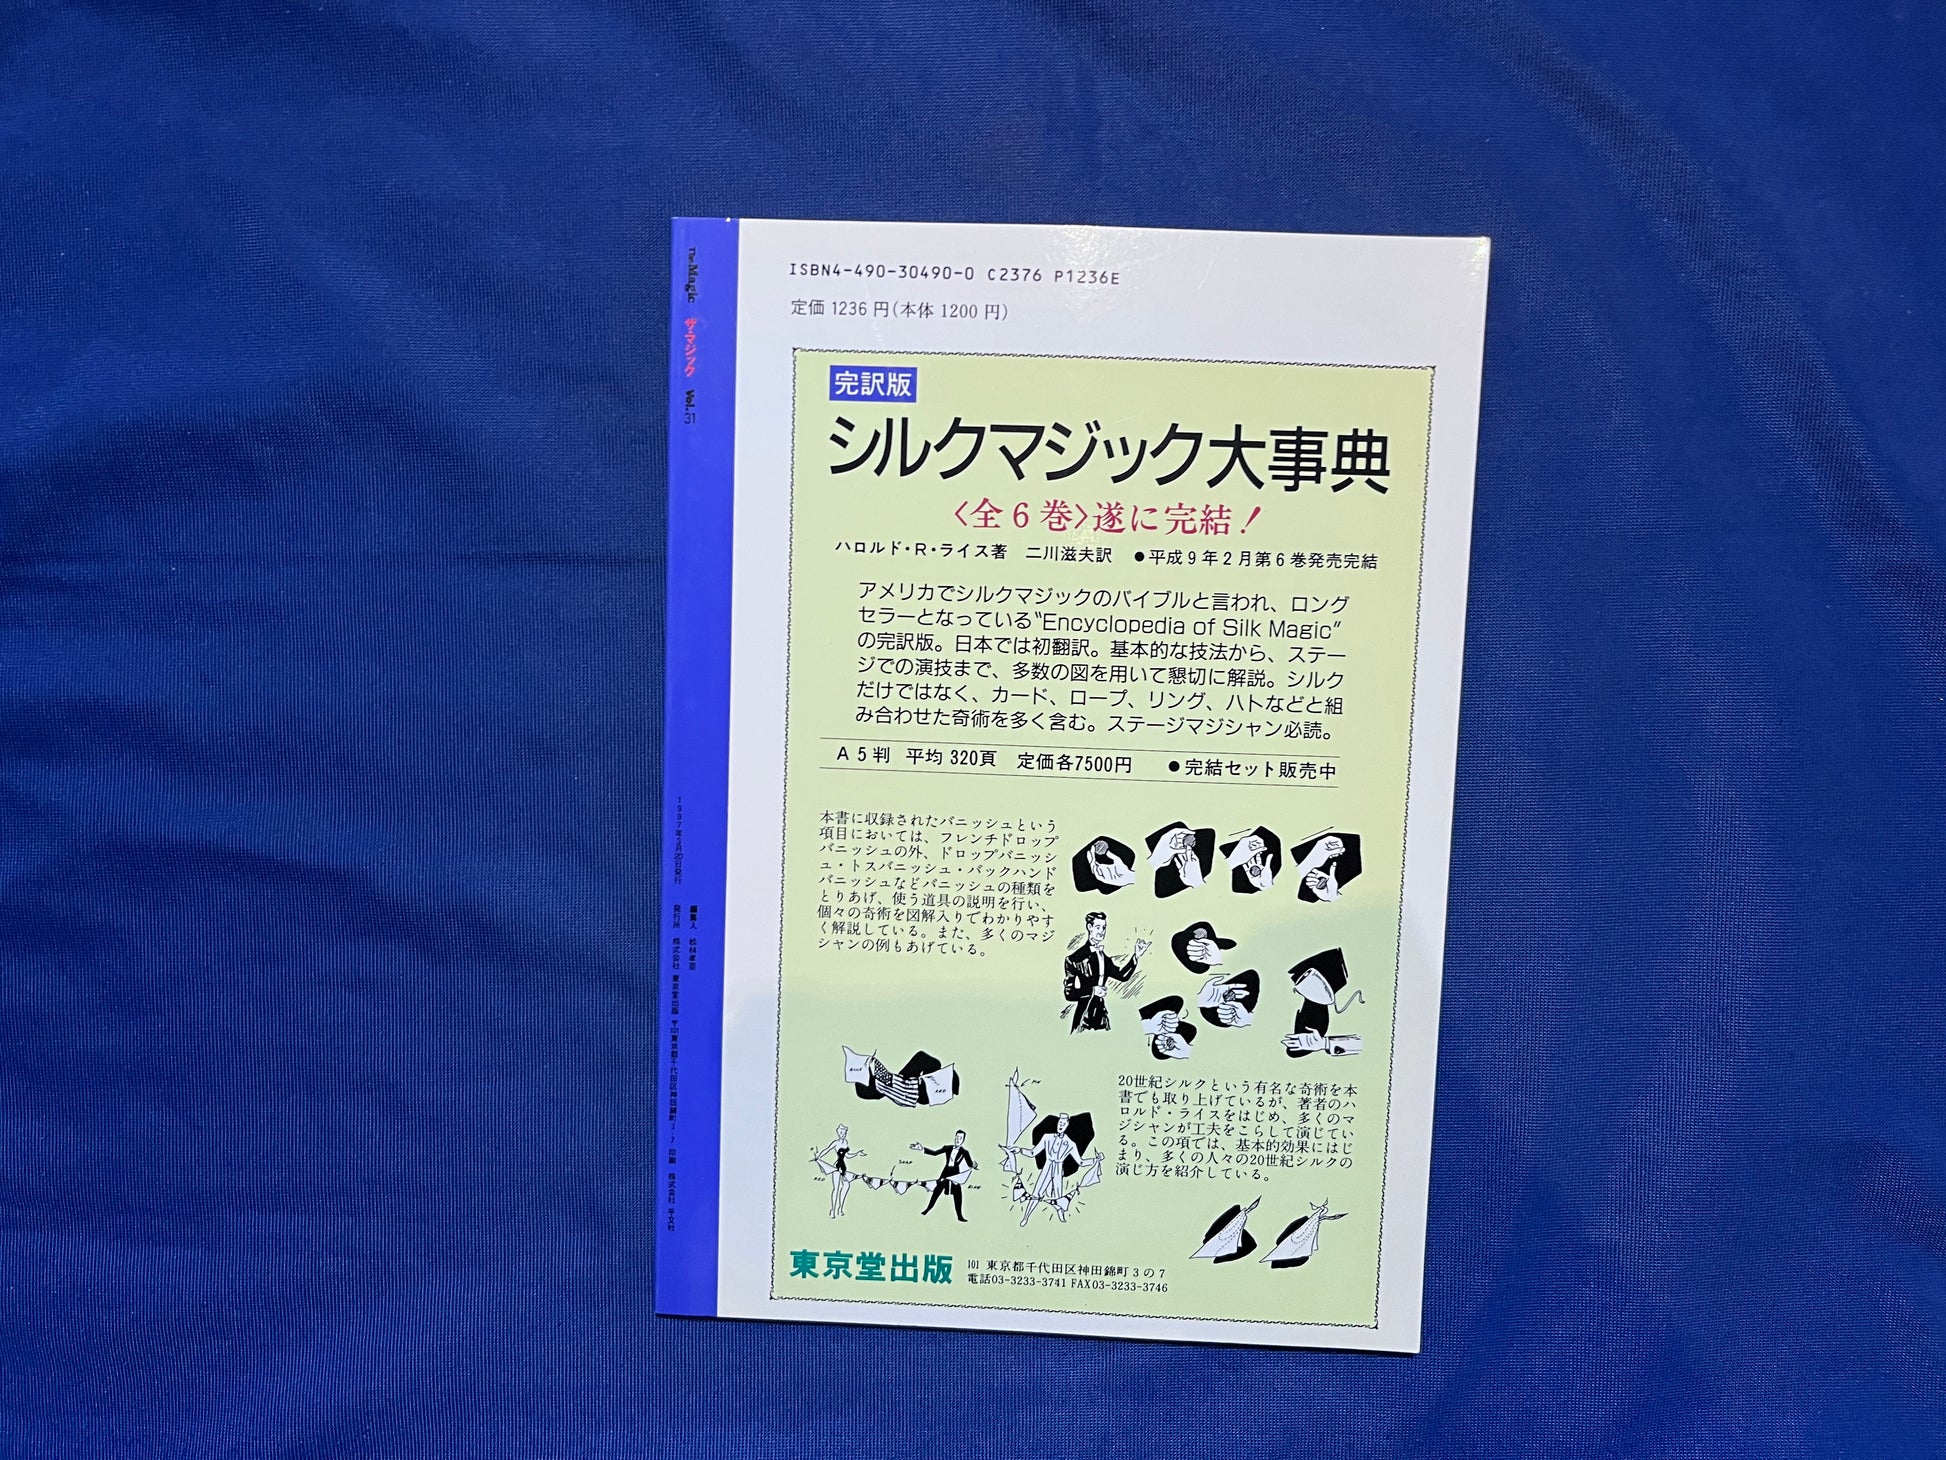 ISBN4-490-30490-0 C2376 P1236E
定価 1236 円(本体 1200 円)
The Magic ザ・マジック Vol.31
完訳版
シルクマジック大事典
〈全6巻〉遂に完結!
ハロルド・R・ライス著 二川滋夫訳 ●平成9年2月第6巻発売完結
アメリカでシルクマジックのバイブルと言われ、ロング
セラーとなっている“Encyclopedia of Silk Magic”
の完訳版。日本では初翻訳。基本的な技法から、ステー
ジでの演技まで、多数の図を用いて懇切に解説。シルク
だけではなく、カード、ロープ、リング、ハトなどと組
み合わせた奇術を多く含む。ステージマジシャン必読。
A5判 平均 320頁 定価各7500円 ●完結セット販売中
本書に収録されたバニッシュという
項目においては、フレンチドロップ
バニッシュの外、ドロップバニッシ
ュ・トスバニッシュ・バックハンド
バニッシュなどバニッシュの種類を
とりあげ、使う道具の説明を行い、
個々の奇術を図解入りでわかりやす
く解説している。また、多くのマジ
シャンの例もあげている。
20世紀シルクという有名な奇術を本
書でも取り上げているが、著者のハ
ロルド・ライスをはじめ、多くのマ
ジシャンが工夫をこらして演じてい
る。この項では、基本的効果にはじ
まり、多くの人々の20世紀シルクの
演じ方を紹介している。
東京堂出版
101 東京都千代田区神田錦町3の7
電話03-3233-3741 FAX03-3233-3746
編集人
発行所 株式会社 東京堂出版 〒101東京都千代田区神田錦町3-7 印刷 株式会社 平文社